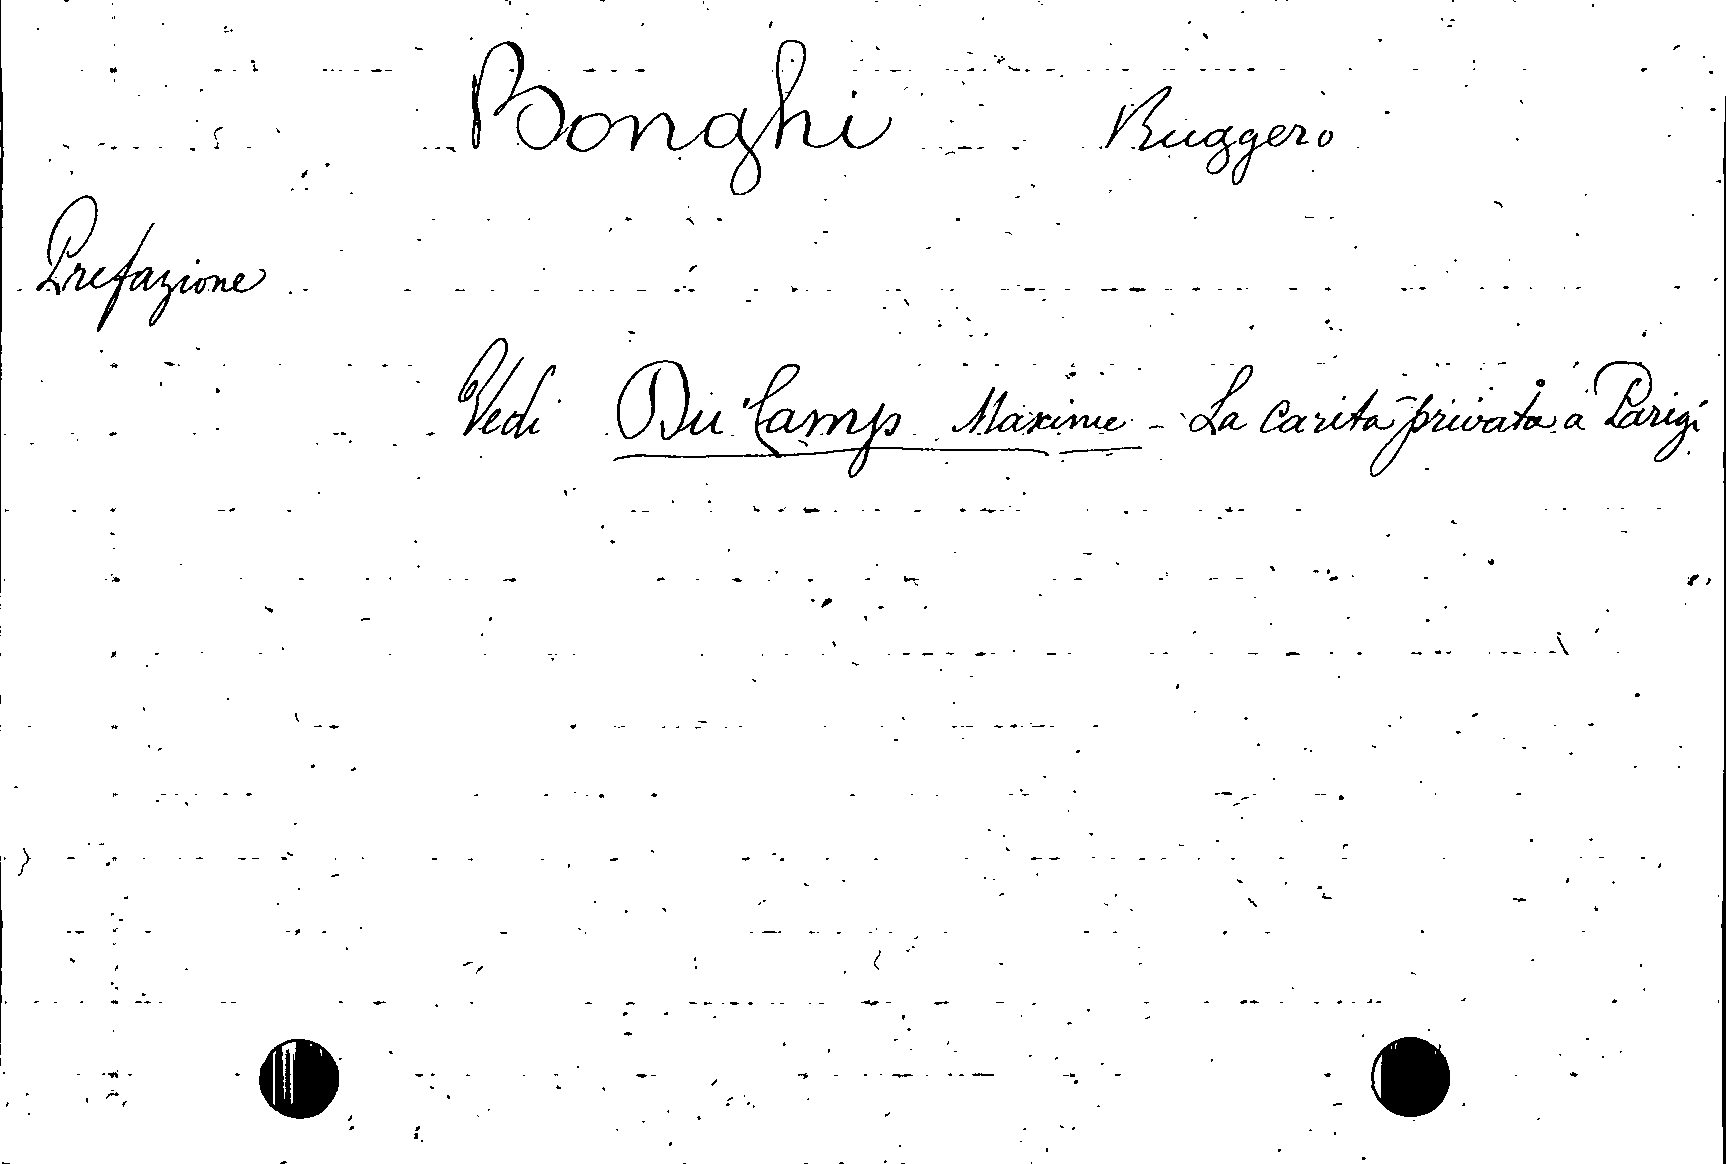 Bonghi Ruggero
Prefazione
Vedi Du Camp Maxime - La carità privata a Parigi